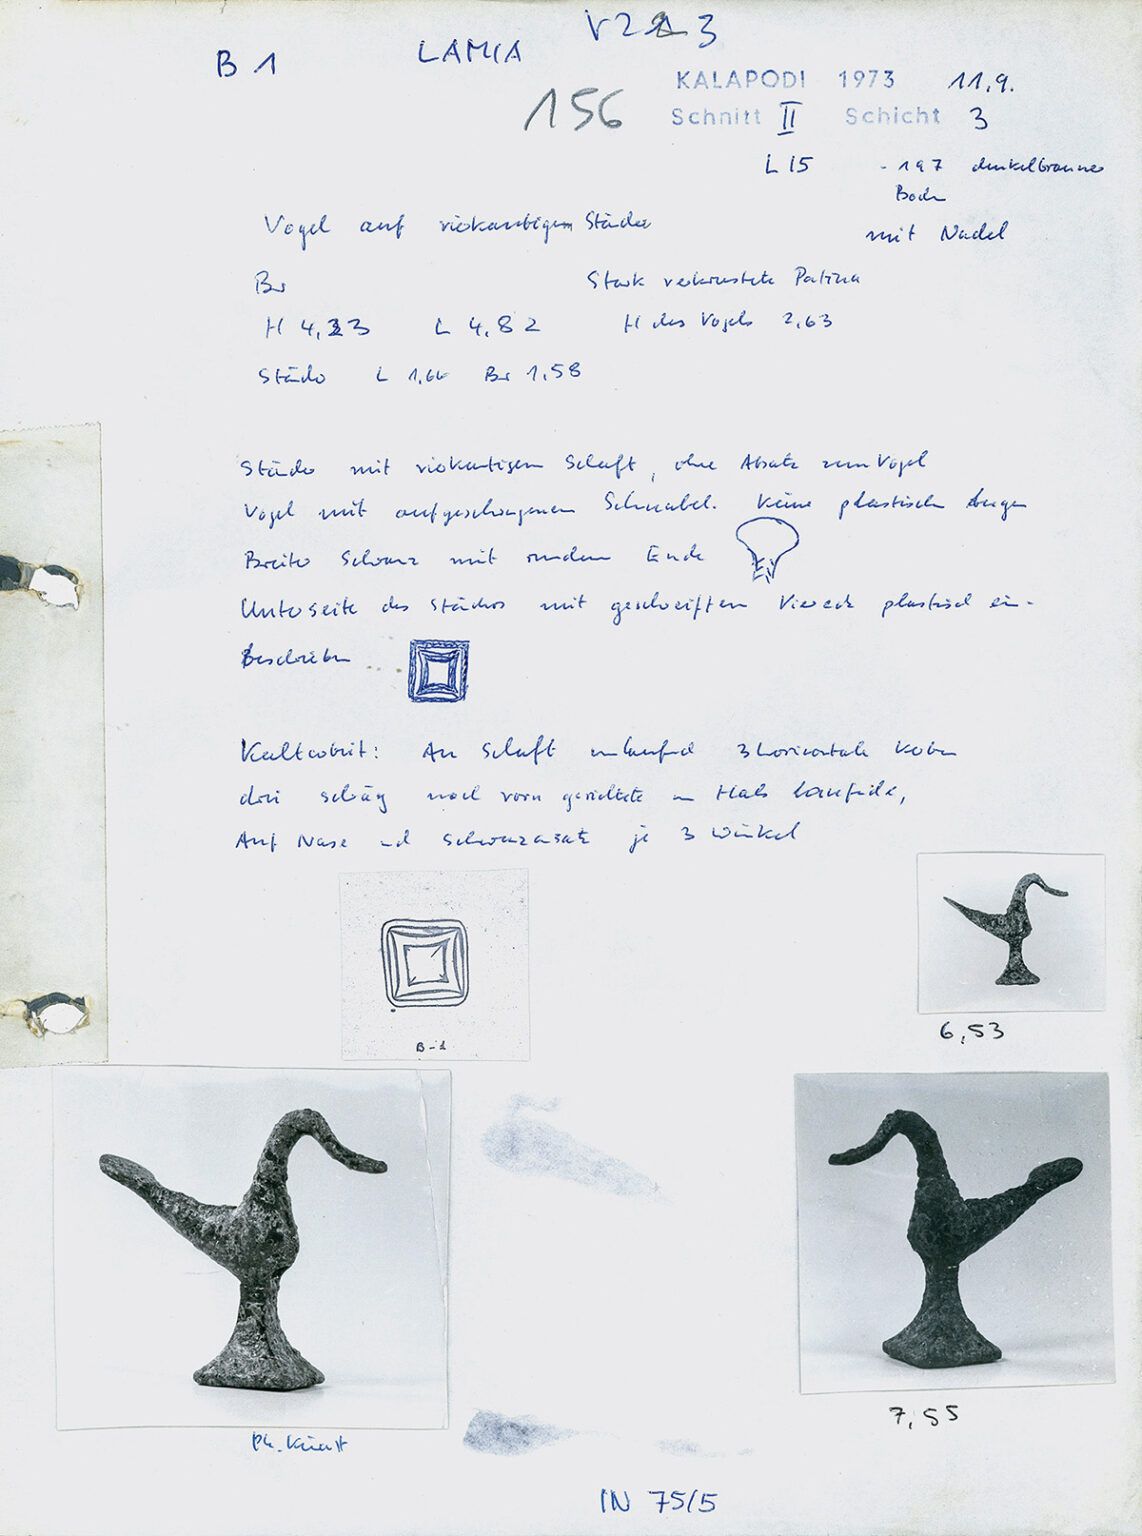 B 1 LAMIA V 2 3
156
KALAPODI 1973 11.9.
Schnitt II Schicht 3
L 15 - 197 dunkelbrauner
Boden
Vogel auf vierkantigem Ständer
mit Nadel
Br
Stark verkrustete Patina
H 4,33 L 4,82 H des Vogels 2,63
Ständer L 1,66 Br 1,58
Ständer mit vierkantigem Schaft, ohne Absatz zum Vogel
Vogel mit aufgeschwungenem Schnabel. Keine plastischen Augen
Breiter Schwanz mit rundem Ende
Unterseite des Ständers mit geschweiftem Viereck plastisch ein-
Beschrieben
Kaltarbeit: Am Schaft umlaufend 3 horizontale Kerben
drei schräg nach vorn gerichtete am Hals laufende,
Auf Nase und Schwanzansatz je 3 Winkel
B-1
6,53
7,55
Ph. 
IN 75/5